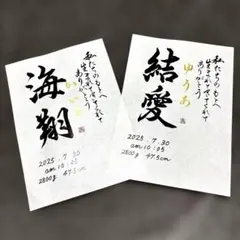 私たちのもとへ
生まれてきてくれて
ありがとう
海翔
2025.7.30
am 10:25
2800g 47.5cm
私たちのもとへ
生まれてきてくれて
ありがとう
結愛
ゆうあ
2025.7.30
am 10:25
2800g 47.5cm